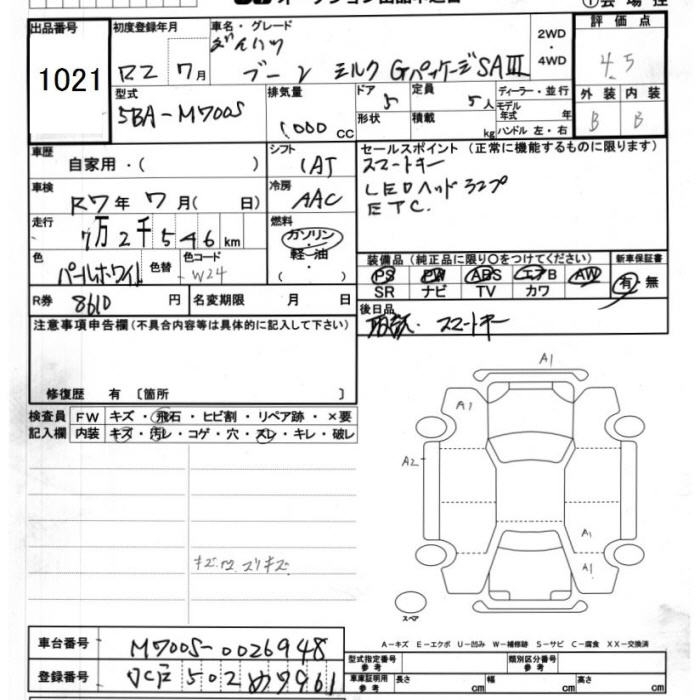 出品番号 初度登録年月 車名・グレード 2WD ・ 4WD 評価点
1021 R2 7月 ダイハツ ブーン シルク GパッケージSAⅢ 4.5
型式 5BA-M700S 排気量 1,000 cc ドア 5 定員 5人 ディーラー・並行 外装 内装
形状 積載 kg モデル年式 年 ハンドル 左・右 B B
車歴 自家用・( ) シフト IAT セールスポイント (正常に機能するものに限ります)
スマートキー
車検 R7年7月( 日) 冷房 AAC LEDヘッドランプ
ETC.
走行 7万2千546km 燃料 ガソリン・軽油・( )
色 パールホワイト 色替 色コード W24
装備品 (純正品に限り○をつけてください) 新車保証書
PS PW ABS エアB AW 有・無
SR ナビ TV カワ
R券 8610 円 名変期限 月 日 後日品
取説. スマートキー
注意事項申告欄 (不具合内容等は具体的に記入して下さい)
修復歴 有 〔箇所 〕
検査員 FW キズ・飛石・ヒビ割・リペア跡・×要
記入欄 内装 キズ・汚レ・コゲ・穴・スレ・キレ・破レ
A1
A1
A2
A1
A1
スペア
A-キズ E-エクボ U-凹み W-補修跡 S-サビ C-腐食 XX-交換済
車台番号 M700S-0026948
型式指定番号 参考 類別区分番号 参考
登録番号 502 7961
車庫証明用 参考 長さ cm 幅 cm 高さ cm